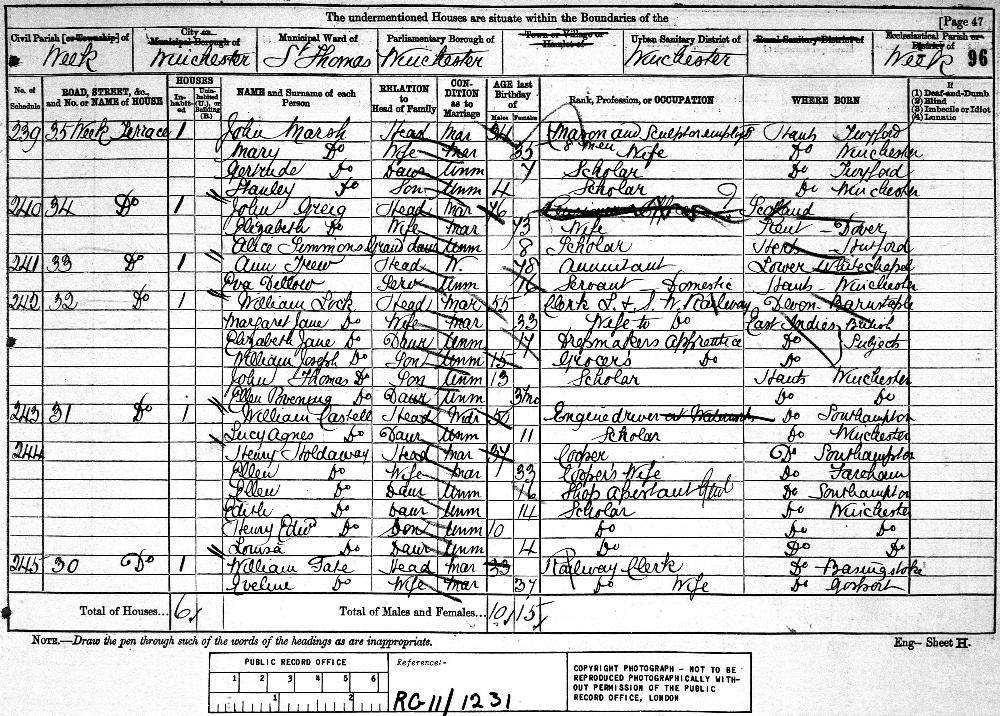 The undermentioned Houses are situate within the Boundaries of the [Page 47
Civil Parish [or Township] of City or Municipal Borough of Municipal Ward of Parliamentary Borough of Town or Village or Hamlet of Urban Sanitary District of Rural Sanitary District of Ecclesiastical Parish or District of
Week Winchester St Thomas Winchester Winchester Week 96
No. of Schedule ROAD, STREET, &c., and No. or NAME of HOUSE HOUSES In-habit-ed Unin-habited (U.), or Building (B.) NAME and Surname of each Person RELATION to Head of Family CON-DITION as to Marriage AGE last Birthday of Males Females Rank, Profession, or OCCUPATION WHERE BORN If (1) Deaf-and-Dumb (2) Blind (3) Imbecile or Idiot (4) Lunatic
239 35 Week Terrace 1 John Marsh Head Mar 34 Mason and Sculptor employg Hants Twyford
8 men
Mary Do Wife Mar 35 Wife Do Winchester
Gertrude Do Daur Unm 7 Scholar Do Twyford
Stanley Do Son Unm 4 Scholar Do Winchester
240 34 Do 1 John Greig Head Mar 76 Scotland
Elizabeth Do Wife Mar 73 Wife Kent - Dover
Alice Simmons Grand daur Unm 8 Scholar Herts - Hertford
241 33 Do 1 Ann Trew Head W. 78 Annuitant Lower Whitechapel
Eva Dellow Serv Unm 16 Servant Domestic Hants - Winchester
242 32 Do 1 William Lock Head Mar 55 Clerk L. & S. W Railway Devon - Barnstaple
Margaret Jane Do Wife Mar 33 Wife to Do East Indies British
Elizabeth Jane Do Daur Unm 17 Dressmakers Apprentice Do Subjects
William Joseph Do Son Unm 15 Grocers Do Do
John Thomas Do Son Unm 13 Scholar Hants Winchester
Ellen Do Daur Unm 3mo Do Do
243 31 Do 1 William Castell Head Widr 50 Engine driver Do Southampton
Lucy Agnes Do Daur Unm 11 Scholar Do Winchester
244 Henry Holdaway Head Mar 37 Cooper Do Southampton
Ellen Do Wife Mar 33 Coopers Wife Do Fareham
Ellen Do Daur Unm 16 Shop Do Southampton
Edith Do Daur Unm 14 Scholar Do Winchester
Henry Edwd Do Son Unm 10 Do Do Do
Louisa Do Daur Unm 4 Do Do Do
245 30 Do 1 William Tate Head Mar 33 Railway Clerk Do Basingstoke
Eveline Do Wife Mar 37 Do Wife Do Gosport
Total of Houses... 6 Total of Males and Females... 10 15
NOTE.—Draw the pen through such of the words of the headings as are inappropriate. Eng— Sheet H.
PUBLIC RECORD OFFICE
1 2 3 4 5 6
1 2
Reference:-
RG 11/1231
COPYRIGHT PHOTOGRAPH - NOT TO BE
REPRODUCED PHOTOGRAPHICALLY WITH-
OUT PERMISSION OF THE PUBLIC
RECORD OFFICE, LONDON